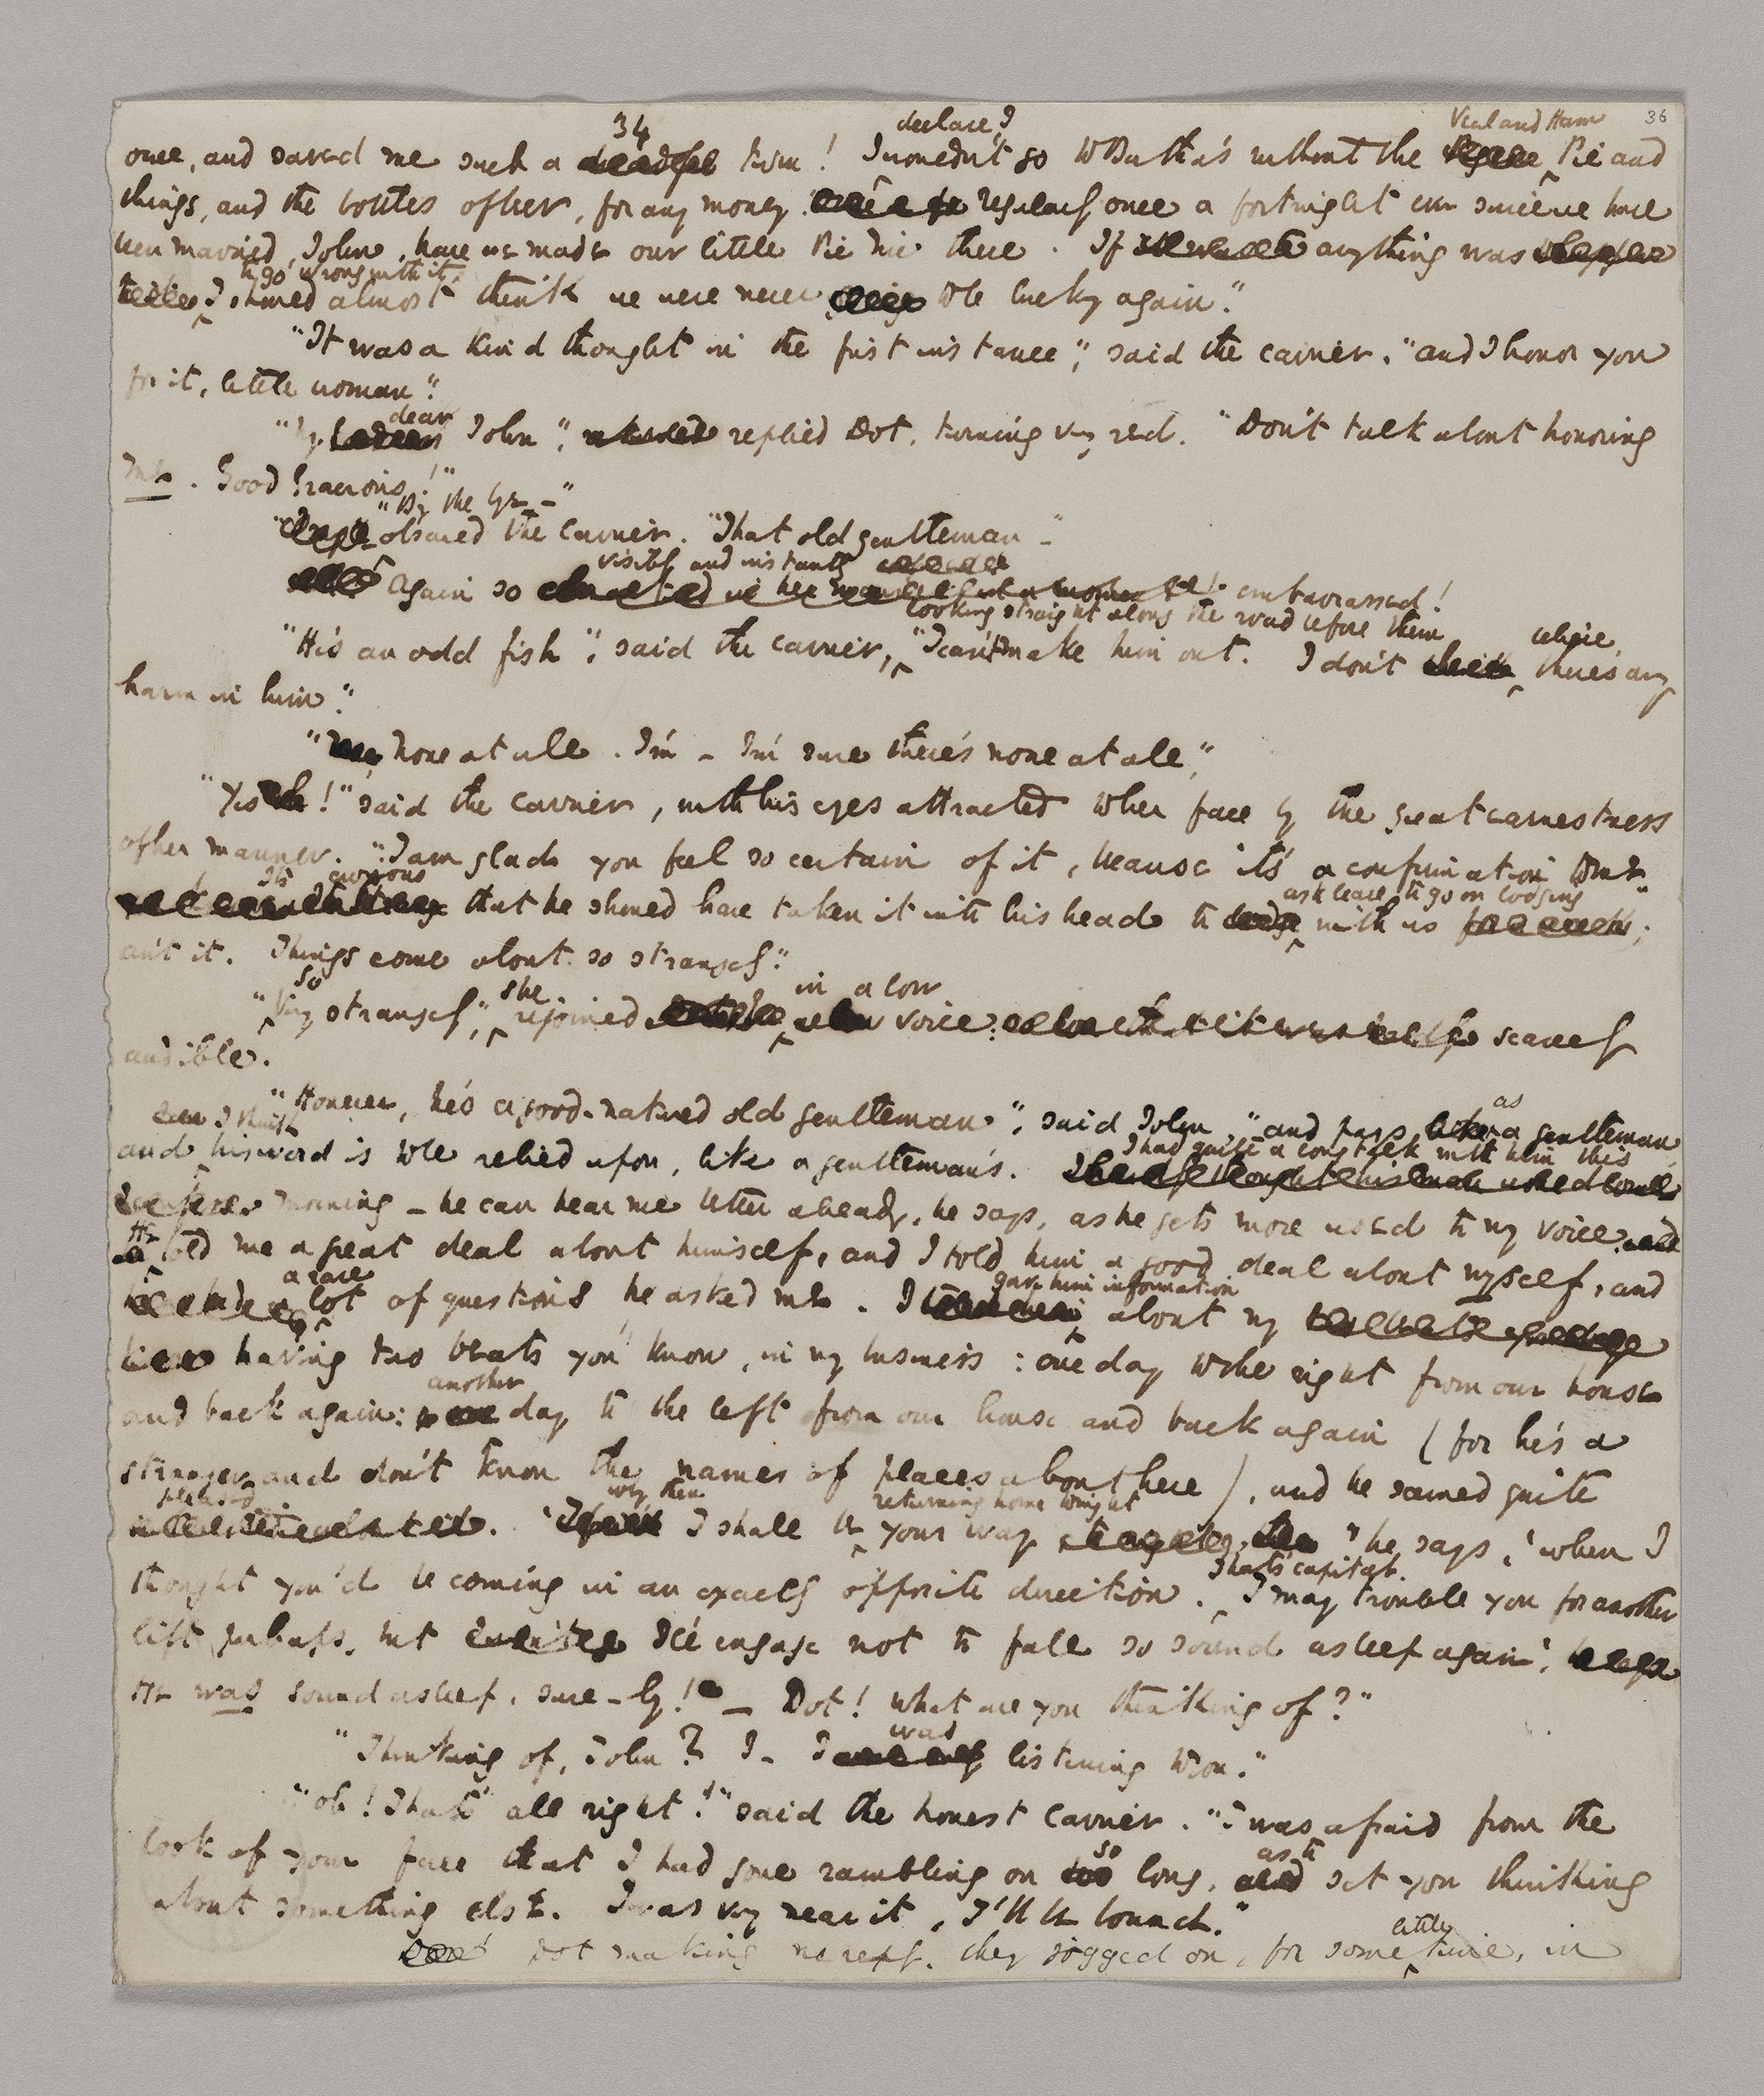 34
36
once, and saved me such a turn! I declare I wouldn't go to Bertha's without the Veal and Ham Pie and
things, and the bottles of beer, for any money. regularly once a fortnight ever since we have
been married, John, have we made our little Pic Nic there. If anything was
to go wrong with it, I should almost think we were never to be lucky again."
"It was a kind thought in the first instance", said the carrier. "and I honor you
for it, little woman".
"My dear John", replied Dot, turning very red. "Don't talk about honoring
me. Good Gracious!"
"By the bye—" observed the carrier. "That old gentleman –"
Again so visibly and instantly embarrassed!
"He's an odd fish", said the carrier, looking straight along the road before them "I can't make him out. I don't believe there's any
harm in him."
"None at all. I'm – I'm sure there's none at all."
"Yes!" said the carrier, with his eyes attracted to her face by the great earnestness
of her manner. "I am glad you feel so certain of it, because it's a confirmation to me.
It's curious that he should have taken it into his head to ask leave to go on lodging with us;
ain't it. Things come about so strangely."
"So very strangely," she rejoined in a low voice: scarcely
audible.
"However, he's a good-natured old gentleman", said John, "and pays as a gentleman,
and I think his word is to be relied upon, like a gentleman's. I had quite a long talk with him this
morning – he can hear me better already, he says, as he gets more used to my voice.
He told me a great deal about himself, and I told him a good deal about myself, and
a rare lot of questions he asked me. I gave him information about my
having two beats you know, in my business: one day to the right from our house
and back again: another day to the left from our house and back again (for he's a
stranger and don't know the names of places about here), and he seemed quite
pleased. 'Why then I shall be returning home tonight your way' he says, 'when I
thought you'd be coming in an exactly opposite direction. That's capital. I may trouble you for another
lift perhaps, but I'll engage not to fall so sound asleep again'.
He was sound asleep, sure-ly! – Dot! what are you thinking of?"
"Thinking of, John? I – I was listening to you."
"oh! That's all right!" said the honest carrier. "I was afraid from the
look of your face that I had gone rambling on so long, as to set you thinking
about something else. I was very near it, I'll be bound."
Dot making no reply, they jogged on, for some little time, in